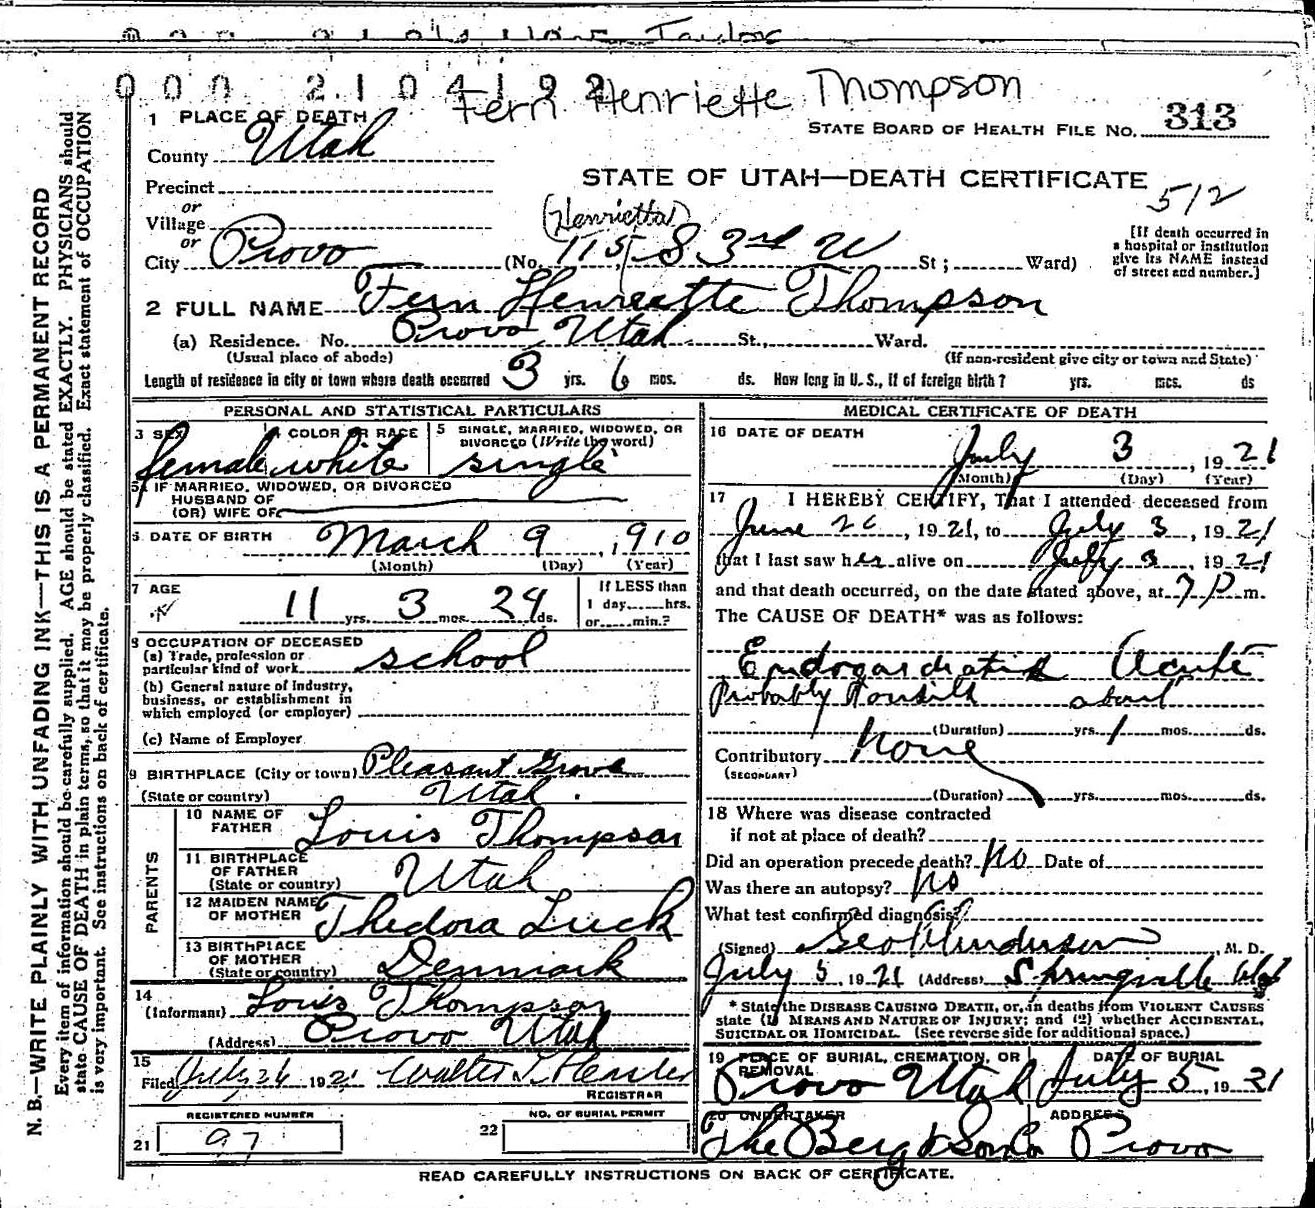 0 0 0 2 1 0 4 1 9 2
Fern Henriette Thompson
1 PLACE OF DEATH
STATE BOARD OF HEALTH FILE No. 313
County Utah
STATE OF UTAH—DEATH CERTIFICATE
512
Precinct
or
Village
(Henrietta)
or
City Provo (No. 115 S 3rd W St; Ward)
[If death occurred in
a hospital or institution
give its NAME instead
of street and number.]
2 FULL NAME Fern Henriette Thompson
(a) Residence. No. Provo Utah St., Ward.
(Usual place of abode) (If non-resident give city or town and State)
Length of residence in city or town where death occurred 3 yrs. 6 mos. ds. How long in U. S., if of foreign birth? yrs. mos. ds
PERSONAL AND STATISTICAL PARTICULARS
3 SEX female
4 COLOR OR RACE white
5 SINGLE, MARRIED, WIDOWED, OR
DIVORCED (Write the word)
single
5a IF MARRIED, WIDOWED, OR DIVORCED
HUSBAND OF
(OR) WIFE OF
6 DATE OF BIRTH March 9, 1910
(Month) (Day) (Year)
7 AGE
11 yrs. 3 mos. 24 ds.
If LESS than
1 day......hrs.
or......min.?
8 OCCUPATION OF DECEASED
(a) Trade, profession or
particular kind of work school
(b) General nature of industry,
business, or establishment in
which employed (or employer)
(c) Name of Employer
9 BIRTHPLACE (City or town) Pleasant Grove
(State or country) Utah.
PARENTS
10 NAME OF
FATHER Louis Thompson
11 BIRTHPLACE
OF FATHER
(State or country) Utah
12 MAIDEN NAME
OF MOTHER Thedora Luck
13 BIRTHPLACE
OF MOTHER
(State or country) Denmark
14
(Informant) Louis Thompson
(Address) Provo Utah
15
Filed July 26 1921 Walter T. Hasler
REGISTRAR
REGISTERED NUMBER
21 97
NO. OF BURIAL PERMIT
22
MEDICAL CERTIFICATE OF DEATH
16 DATE OF DEATH
July 3, 1921
(Month) (Day) (Year)
17 I HEREBY CERTIFY, That I attended deceased from
June, 1921, to July 3, 1921
that I last saw her alive on July 3, 1921
and that death occurred, on the date stated above, at 7 P m.
The CAUSE OF DEATH* was as follows:
Acute
probably about
(Duration) yrs. 1 mos. ds.
Contributory None
(SECONDARY)
(Duration) yrs. mos. ds.
18 Where was disease contracted
if not at place of death?
Did an operation precede death? No Date of
Was there an autopsy? No
What test confirmed diagnosis?
(Signed) Geo Anderson, M. D.
July 5, 1921 (Address) Springville Utah
* State the DISEASE CAUSING DEATH, or, in deaths from VIOLENT CAUSES
state (1) MEANS AND NATURE OF INJURY; and (2) whether ACCIDENTAL,
SUICIDAL OR HOMICIDAL. (See reverse side for additional space.)
19 PLACE OF BURIAL, CREMATION, OR
REMOVAL
Provo Utah
DATE OF BURIAL
July 5, 1921
20 UNDERTAKER
The Berg & Son Co
ADDRESS
Provo
READ CAREFULLY INSTRUCTIONS ON BACK OF CERTIFICATE.
N. B.—WRITE PLAINLY WITH UNFADING INK—THIS IS A PERMANENT RECORD
Every item of information should be carefully supplied. AGE should be stated EXACTLY. PHYSICIANS should
state CAUSE OF DEATH in plain terms, so that it may be properly classified. Exact statement of OCCUPATION
is very important. See instructions on back of certificate.